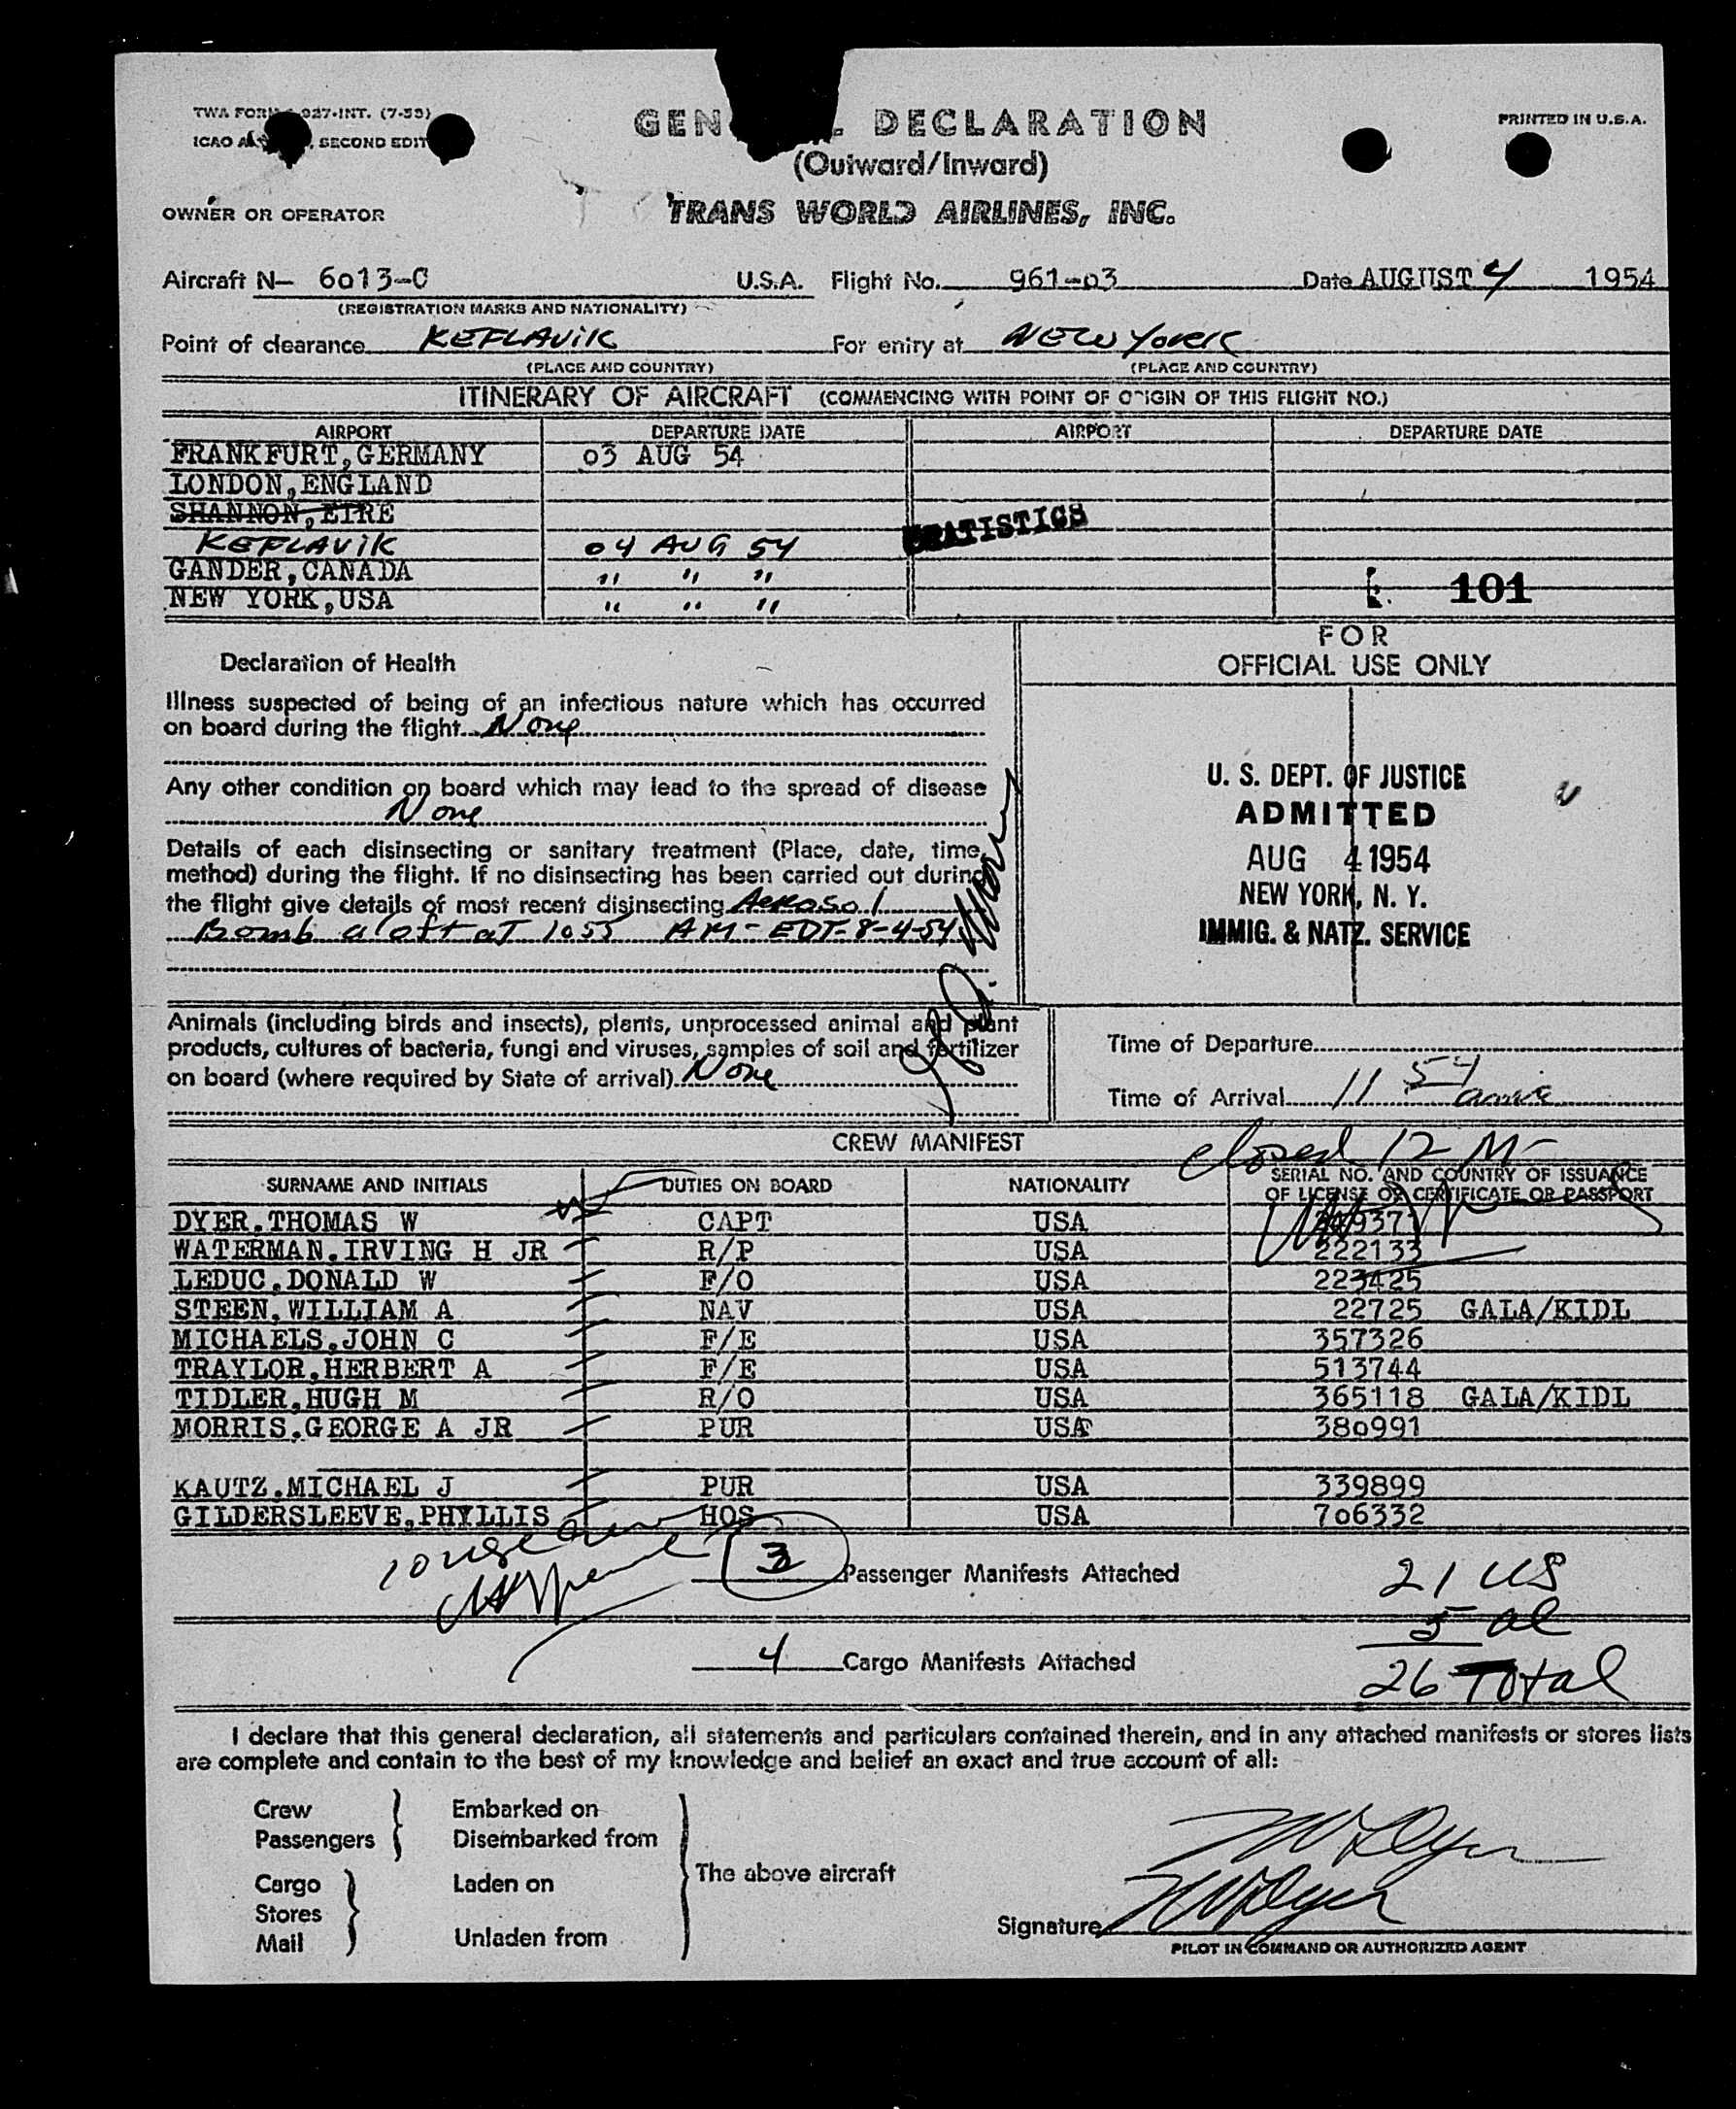 TWA FORM 927-INT. (7-53)
ICAO SECOND EDIT
PRINTED IN U.S.A.
GEN L DECLARATION
(Outward/Inward)
OWNER OR OPERATOR TRANS WORLD AIRLINES, INC.
Aircraft N— 6013-C U.S.A. Flight No. 961-03 Date AUGUST 4 1954
(REGISTRATION MARKS AND NATIONALITY)
Point of clearance KEFLAVIK For entry at NEW YORK
(PLACE AND COUNTRY) (PLACE AND COUNTRY)
ITINERARY OF AIRCRAFT (COMMENCING WITH POINT OF ORIGIN OF THIS FLIGHT NO.)
AIRPORT DEPARTURE DATE AIRPORT DEPARTURE DATE
FRANKFURT, GERMANY 03 AUG 54
LONDON, ENGLAND
SHANNON, EIRE
STATISTICS
KEFLAVIK 04 AUG 54
GANDER, CANADA " " "
NEW YORK, USA " " "
101
Declaration of Health
Illness suspected of being of an infectious nature which has occurred
on board during the flight None
Any other condition on board which may lead to the spread of disease
None
Details of each disinsecting or sanitary treatment (Place, date, time,
method) during the flight. If no disinsecting has been carried out during
the flight give details of most recent disinsecting Aerosol
Bomb aloft at 1055 AM-EDT-8-4-54
FOR
OFFICIAL USE ONLY
U. S. DEPT. OF JUSTICE
ADMITTED
AUG 4 1954
NEW YORK, N. Y.
IMMIG. & NATZ. SERVICE
Animals (including birds and insects), plants, unprocessed animal and plant
products, cultures of bacteria, fungi and viruses, samples of soil and fertilizer
on board (where required by State of arrival) None
Time of Departure
Time of Arrival 11 54
closed 12 M
CREW MANIFEST
SURNAME AND INITIALS DUTIES ON BOARD NATIONALITY SERIAL NO. AND COUNTRY OF ISSUANCE
OF LICENSE OR CERTIFICATE OR PASSPORT
DYER, THOMAS W CAPT USA
WATERMAN, IRVING H JR R/P USA 222133
LEDUC, DONALD W F/O USA 223425
STEEN, WILLIAM A NAV USA 22725 GALA/KIDL
MICHAELS, JOHN C F/E USA 357326
TRAYLOR, HERBERT A F/E USA 513744
TIDLER, HUGH M R/O USA 365118 GALA/KIDL
MORRIS, GEORGE A JR PUR USA 380991
KAUTZ, MICHAEL J PUR USA 339899
GILDERSLEEVE, PHYLLIS HOS USA 706332
10 use crew
3 Passenger Manifests Attached
21 US
5 al
4 Cargo Manifests Attached
26 Total
I declare that this general declaration, all statements and particulars contained therein, and in any attached manifests or stores lists
are complete and contain to the best of my knowledge and belief an exact and true account of all:
Crew Embarked on
Passengers Disembarked from
The above aircraft
Cargo Laden on
Stores
Mail Unladen from
TW Dyer
TW Dyer
Signature
PILOT IN COMMAND OR AUTHORIZED AGENT